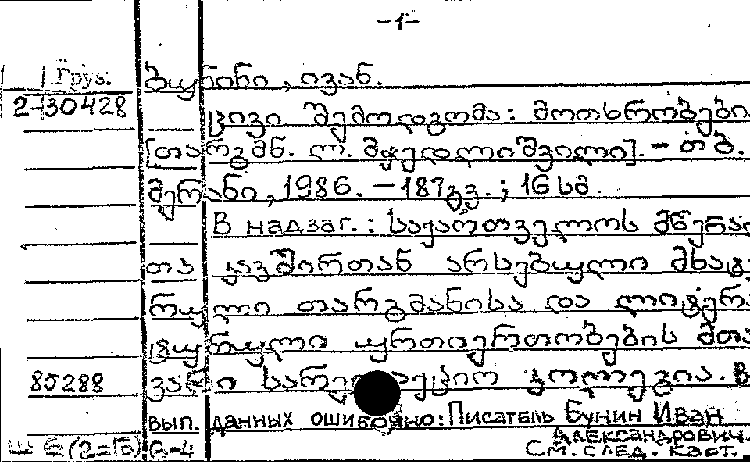 -1-
Груз. ბუნინი, ივან.
2-30428
ცივი შემოდგომა: მოთხრობები
[თარგმნ. ლ. მჭედლიშვილი]. - თბ.
მერანი, 1986. - 187გვ.; 16 სმ.
В надзаг.: საქართველოს მწერალ
თა კავშირთან არსებული მხატვ
რული თარგმანისა და ლიტერა
ტურული ურთიერთობების მთა
85288 ვარი სარედაქციო კოლეგია. В
вып. данных ошибочно: Писатель Бунин Иван
Александрович.
Ш6(2=Р) Б-4 См. след. карт.